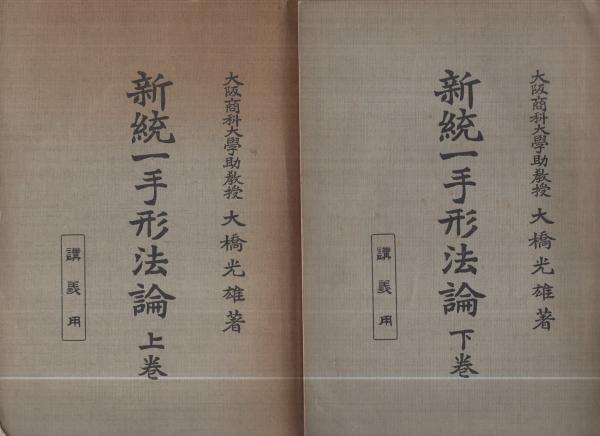 大阪商科大學助教授 大橋光雄著
新統一手形法論 上巻
講義用
大阪商科大學助教授 大橋光雄著
新統一手形法論 下巻
講義用